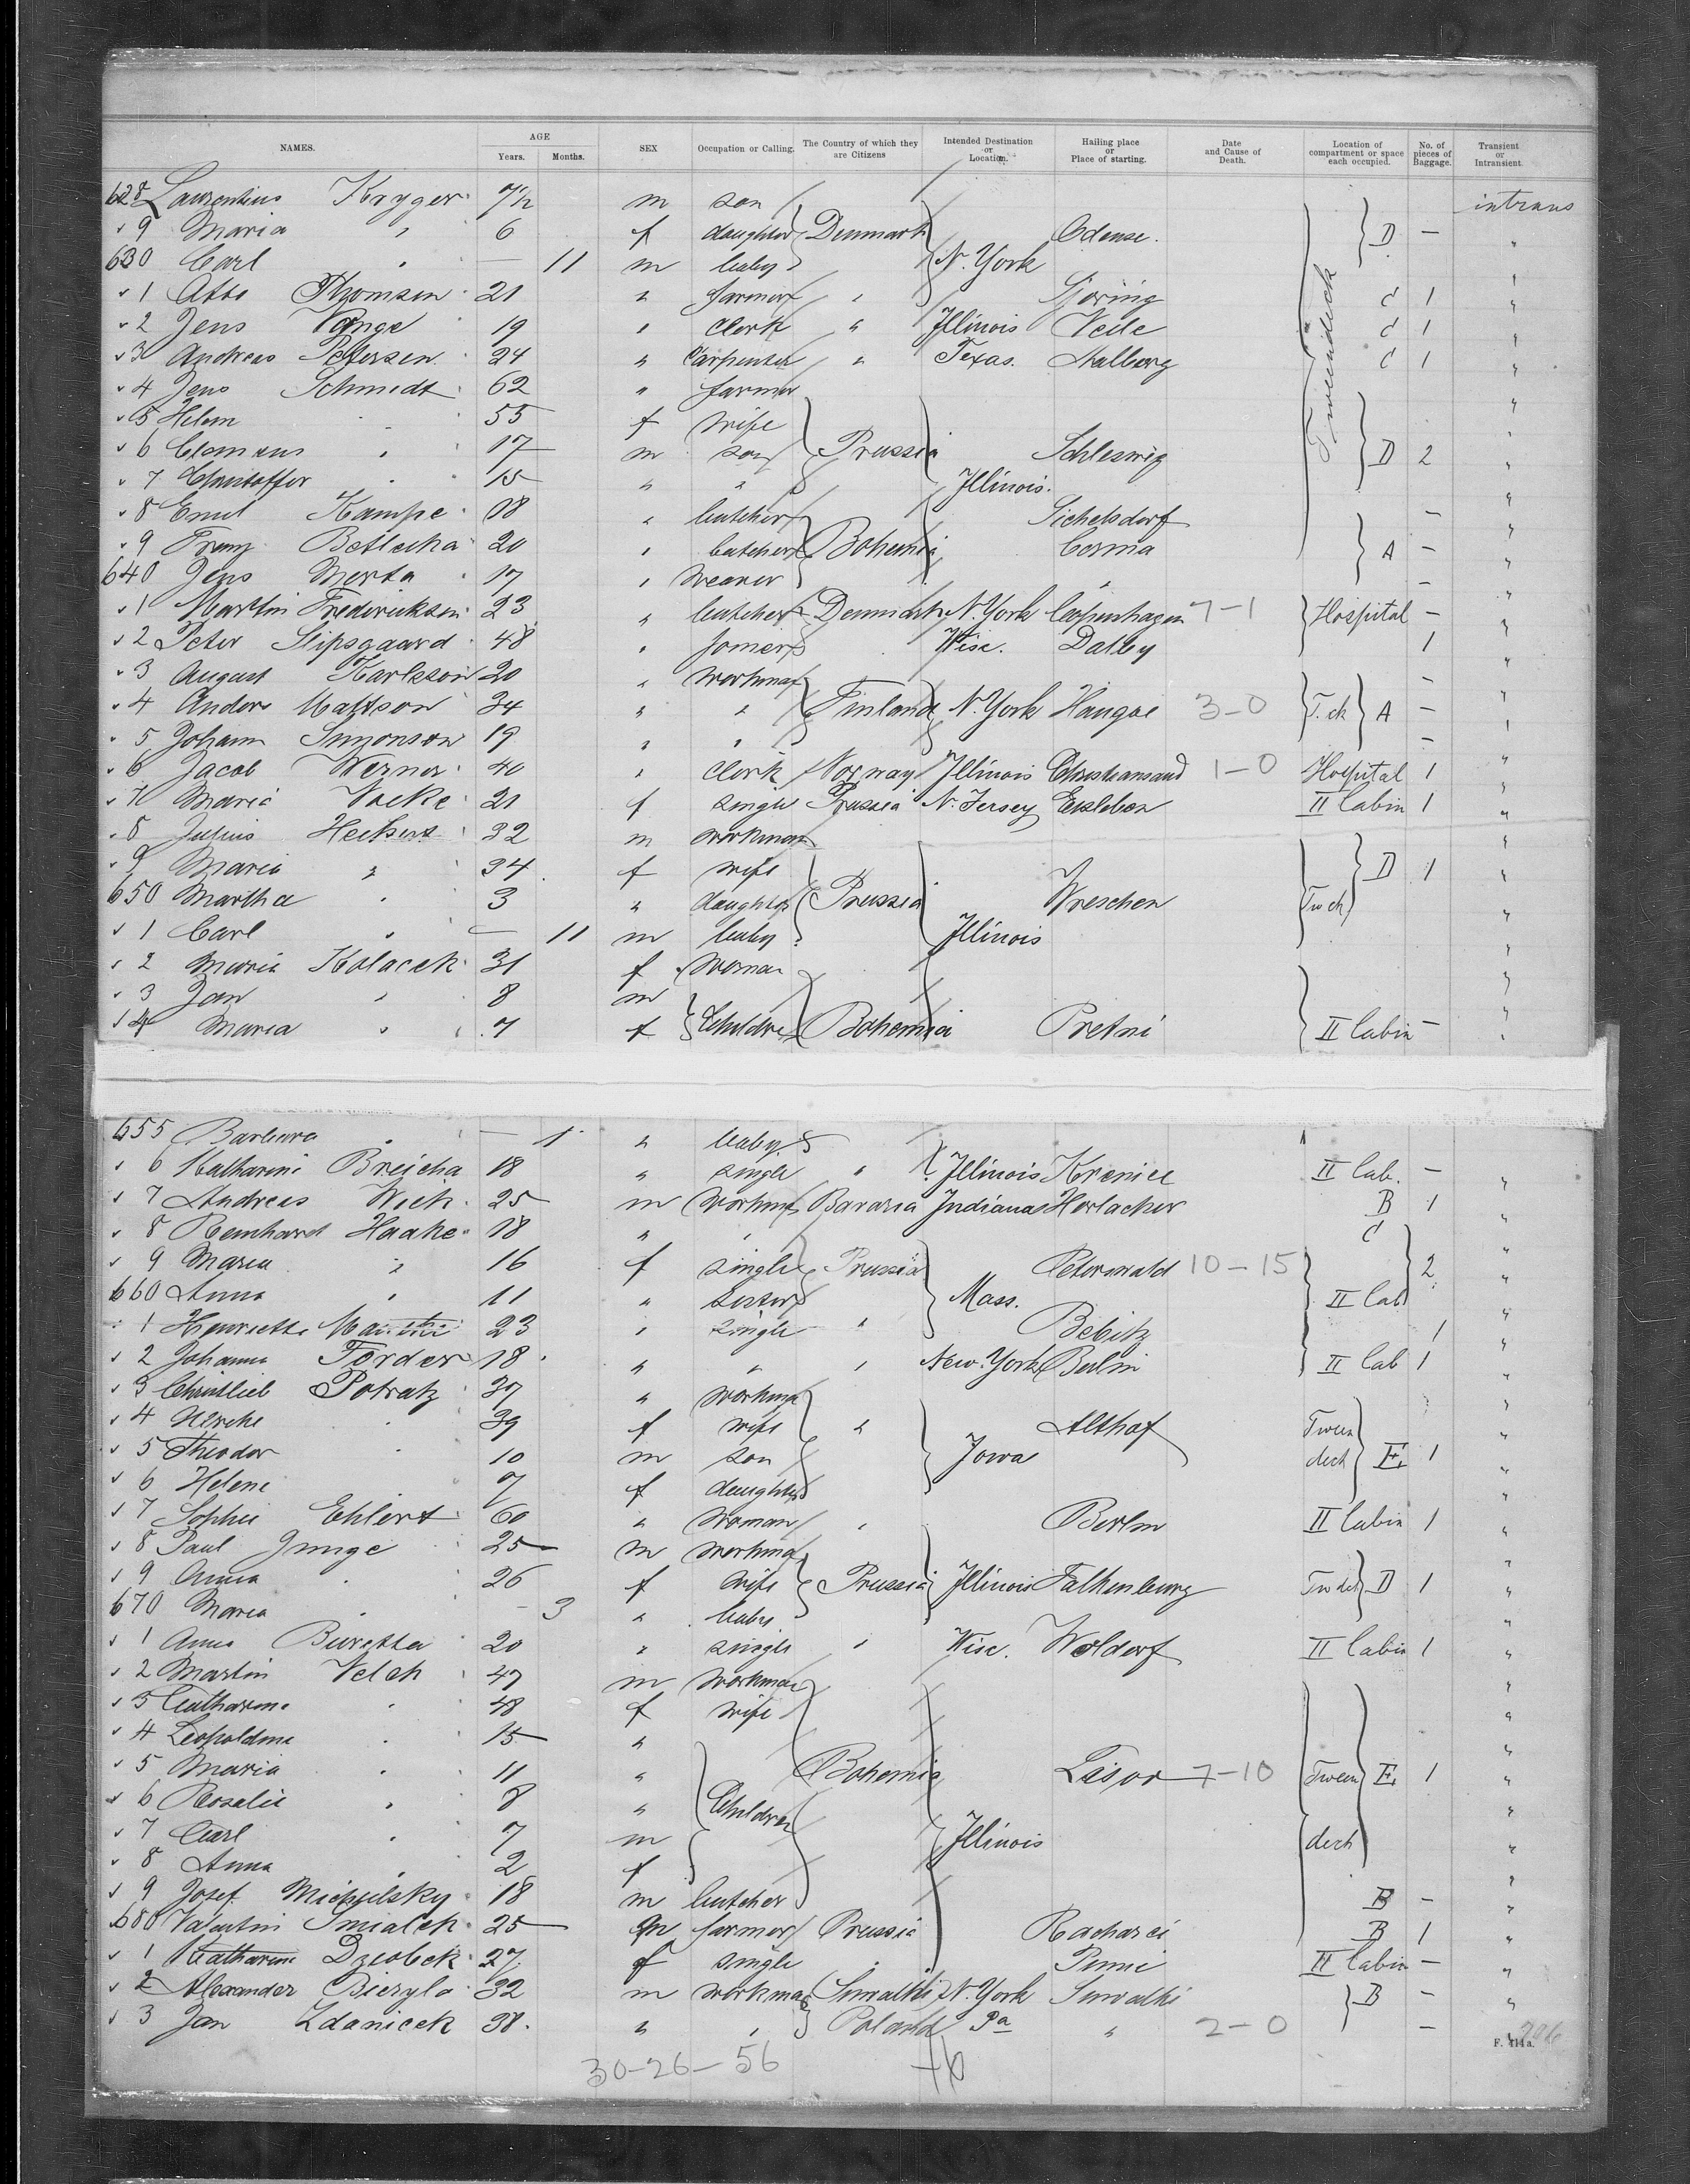 NAMES. AGE Years. Months. SEX Occupation or Calling. The Country of which they are Citizens Intended Destination or Location. Hailing place or Place of starting. Date and Cause of Death. Location of compartment or space each occupied. No. of pieces of Baggage. Transient or Intransient.
628 Laurentius Kryger 7½ m son intrans
" 9 Maria " 6 f daughter Denmark Odense. D — "
630 Carl " — 11 m baby N. York "
" 1 Thomsen 21 " farmer " Hjoring C 1 "
" 2 Jens 19 " clerk " Illinois Veile C 1 "
" 3 Andreas Petersen 24 " Carpenter " Texas. Aalborg C 1 "
" 4 Jens Schmidt 62 " farmer Tweendeck "
" 5 Helem " 55 f wife "
" 6 Clemens " 17 m son Prussia Schleswig D 2 "
" 7 Christoffer " 15 " " Illinois. "
" 8 Emil Kampe 18 " butcher Sichelsdorf — "
" 9 Franz 20 " butcher Bohemia Cosma A — "
640 Jens Merta 17 " weaver " — "
" 1 Martin Frederickson 23 " butcher Denmark N. York Copenhagen 7-1 Hospital — "
" 2 Peter Slipsgaard 48 " joiner Wisc. Dalby 1 "
" 3 August Karlsson 20 " workman — "
" 4 Anders Mattson 34 " " Finland N. York Hangoe 3-0 T. ck A — "
" 5 Johann Simonson 19 " " — "
" 6 Jacob Werner 40 " clerk Norway Illinois Christiansand 1-0 Hospital 1 "
" 7 Maria Vocke 21 f single Prussia N. Jersey Eisleben II Cabin 1 "
" 8 Julius Heckert 32 m workman "
" 9 Maria " 34 f wife D 1 "
650 Martha " 3 " daughter Prussia Wreschen Tw ck "
" 1 Carl " — 11 m baby Illinois "
" 2 Maria Kolacek 31 f woman "
" 3 Jan " 8 m "
" 4 Maria " 7 f Children Bohemia Pretni II Cabin — "
655 Barbara " — 1 " baby
" 6 Katharine Brejcha 18 " single " Illinois Krenice II Cab. — "
" 7 Andreas Wich 25 m workman Bavaria Indiana Horlacher B 1 "
" 8 Reinhard Haake 18 " " C "
" 9 Maria " 16 f single Prussia Peterswald 10-15 2 "
660 Anna " 11 " sister Mass. II Cab "
" 1 Henriette 23 " single " Bebitz 1 "
" 2 Johanna Forder 18 " " " New York Berlin II Cab 1 "
" 3 Christlieb Potratz 37 " workman "
" 4 " 39 f wife " Althof Tween "
" 5 Theodor " 10 m son Iowa deck E 1 "
" 6 Helene 7 f daughter "
" 7 Sophie Ehlert 60 " woman " Berlin II Cabin 1 "
" 8 Paul Junge 25 m workman "
" 9 Anna " 26 f wife Prussia Illinois Falkenburg Tw deck D 1 "
670 Maria " — 3 " baby "
" 1 Anna Buretta 20 " single " Wisc. Woldorf II Cabin 1 "
" 2 Martin Velch 47 m workman "
" 3 Catharina " 48 f wife "
" 4 Leopoldina " 15 " "
" 5 Maria " 11 " Bohemia Lisov 7-10 Tween E 1 "
" 6 Rosalie " 8 " Children "
" 7 Carl " 7 m Illinois deck "
" 8 Anna " 2 f "
" 9 Josef Michulsky 18 m butcher B — "
680 Valentin Smialek 25 m farmer Prussia B 1 "
" 1 Katharine Dziobek 27 f single " Pinne II Cabin — "
" 2 Alexander Bieryla 32 m workman Suwalki N. York Suwalki B — "
" 3 Jan Zdanicek 38. " " Poland Pa " 2-0 — "
F. 414a.
30-26-56